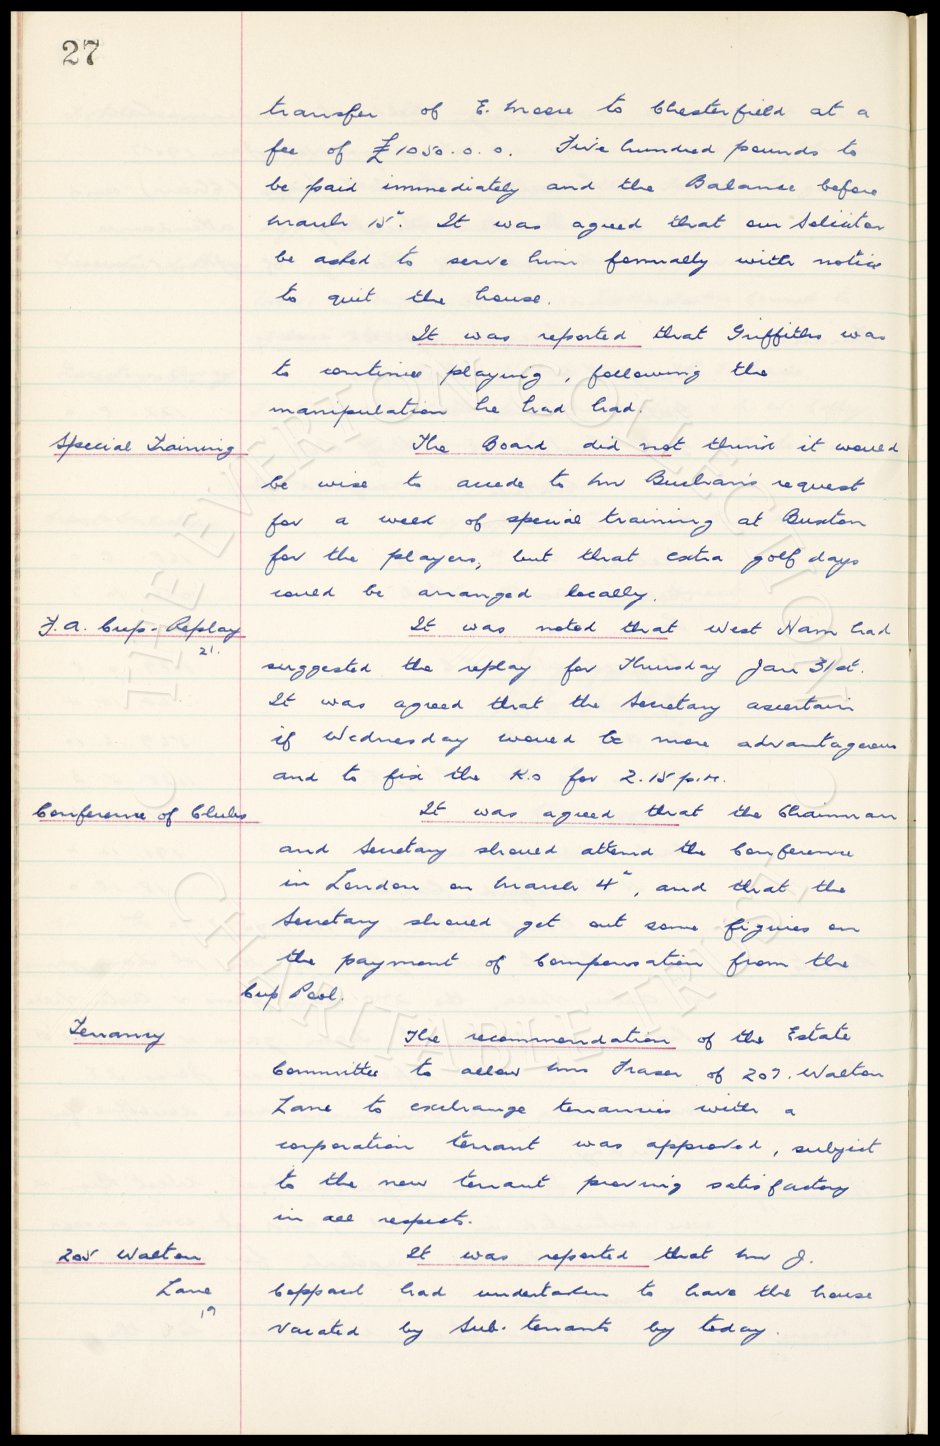 27
transfer of E. Moore to Chesterfield at a
fee of £1050.0.0. Five hundred pounds to
be paid immediately and the Balance before
March 15". It was agreed that our Solicitor
be asked to serve him formally with notice
to quit the house.
It was reported that Griffiths was
to continue playing, following the
manipulation he had had.
Special Training The Board did not think it would
be wise to accede to Mr Buchan's request
for a week of special training at Buxton
for the players, but that extra golf days
could be arranged locally.
F.A. Cup - Replay It was noted that West Ham had
21.
suggested the replay for Thursday Jan 31st.
It was agreed that the Secretary ascertain
if Wednesday would be more advantageous
and to fix the K.O for 2.15 p.m.
Conference of Clubs It was agreed that the Chairman
and Secretary should attend the Conference
in London on March 4", and that the
Secretary should get out some figures on
the payment of Compensation from the
Cup Pool.
Tenancy The recommendation of the Estate
Committee to allow Mrs Fraser of 207. Walton
Lane to exchange tenancies with a
corporation tenant was approved, subject
to the new tenant proving satisfactory
in all respects.
205 Walton It was reported that Mr J.
Lane Coppard had undertaken to have the house
19
vacated by Sub. tenants by today.
THE EVERTON COLLECTION
CHARITABLE TRUST